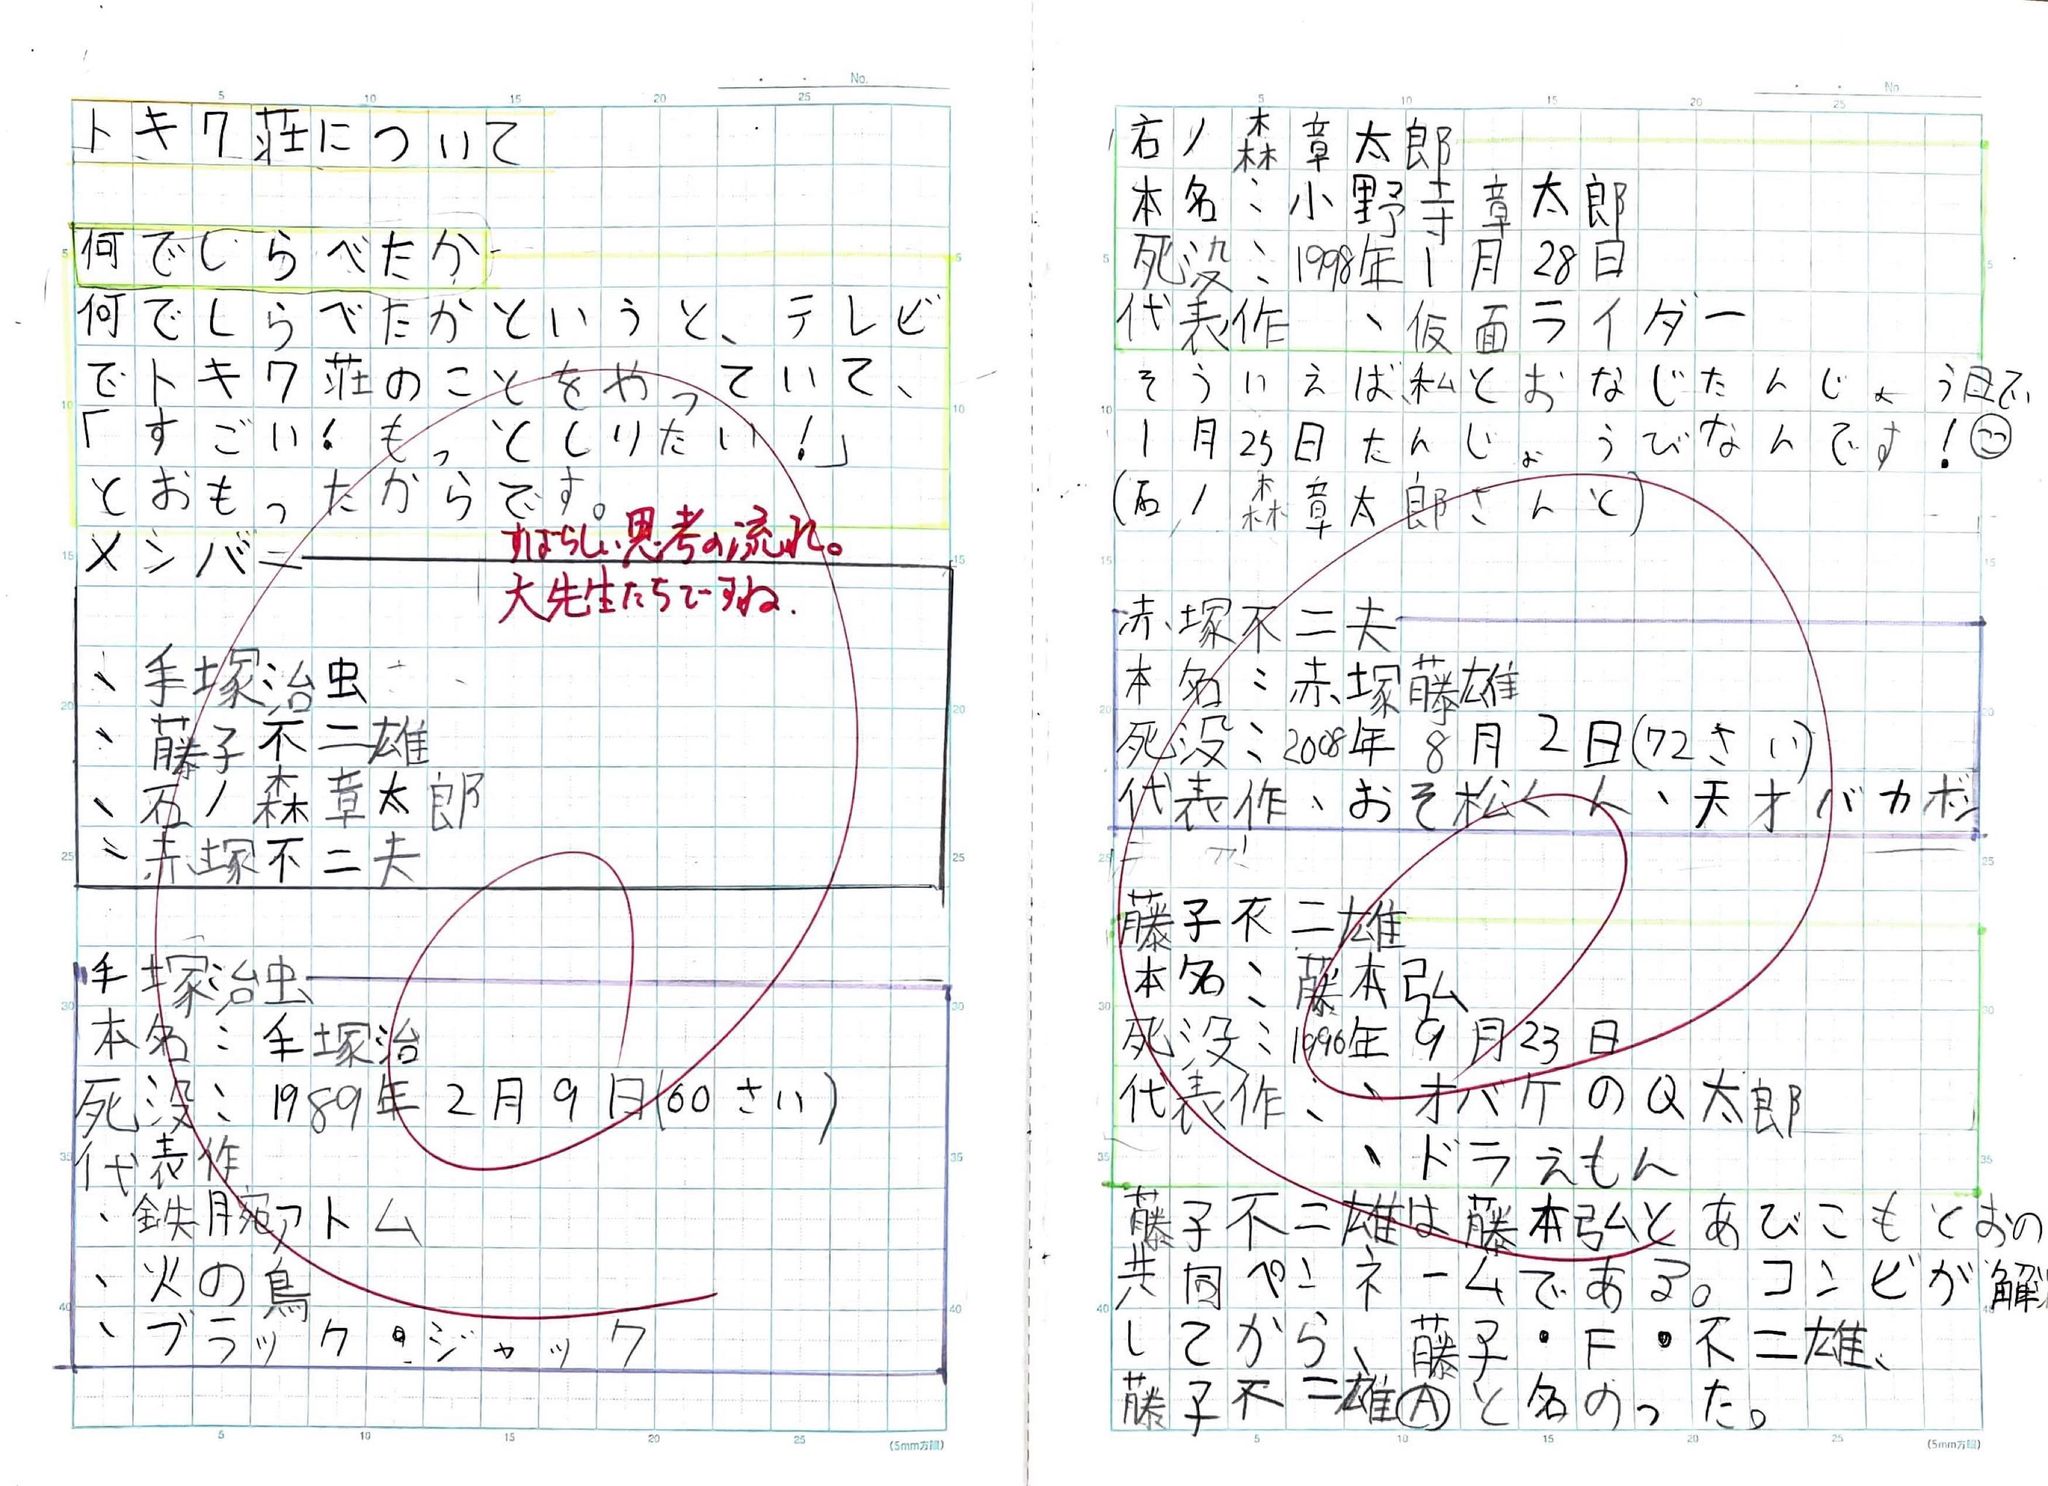 トキワ荘について
何でしらべたか
何でしらべたかというと、テレビ
でトキワ荘のことをやっていて、
「すごい!もっとしりたい!」
とおもったからです。
すばらしい思考の流れ。
大先生たちですね。
メンバー
、手塚治虫
、藤子不二雄
、石ノ森章太郎
、赤塚不二夫
手塚治虫
本名:手塚治
死没:1989年2月9日(60さい)
代表作
、鉄腕アトム
、火の鳥
、ブラック・ジャック
(5mm方眼)
No.
石ノ森章太郎
本名:小野寺章太郎
死没:1998年1月28日
代表作、仮面ライダー
そういえば、私とおなじたんじょう日で
1月25日たんじょうびなんです!
(石ノ森章太郎さんと)
赤塚不二夫
本名:赤塚藤雄
死没:2008年8月2日(72さい)
代表作、おそ松くん、天才バカボン
藤子不二雄
本名:藤本弘
死没:1996年9月23日
代表作:、オバケのQ太郎
、ドラえもん
藤子不二雄は藤本弘とあびこもとおの
共同ペンネームである。コンビが解
してから、藤子・F・不二雄、
藤子不二雄Ⓐと名のった。
(5mm方眼)
No.